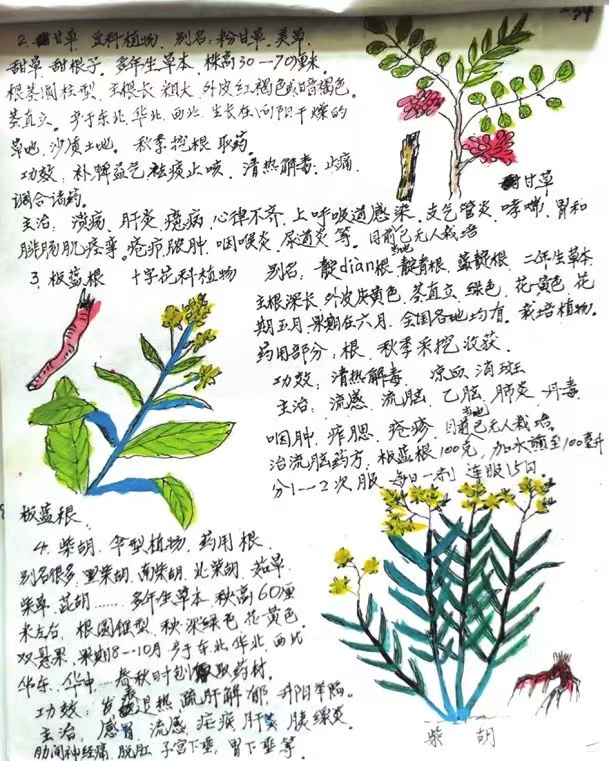 39
2. 甘草 豆科植物、别名:粉甘草、美草、
甜草、甜根子。多年生草本、株高30—70厘米
根茎圆柱型、主根长、粗大、外皮红褐色或暗褐色。
茎直立。多于东北、华北、西北、生长在向阳干燥的
草地、沙质土地。 秋季挖根取药。
功效:补脾益气、祛痰止咳、清热解毒、止痛、
调合诸药。
甘草
主治:溃疡、肝炎、癔病、心律不齐、上呼吸道感染、支气管炎、哮喘、胃和
腓肠肌痉挛。疮疖脓肿、咽喉炎、尿道炎等。目前当地已无人栽培
3、板蓝根 十字花科植物 别名、靛dian根、靛青根、蓝靛根、二年生草本
主根深长、外皮灰黄色、茎直立、绿色、花黄色、花
期五月、果期在六月、全国各地均有。栽培植物。
药用部分:根、秋季采挖收获。
功效:清热解毒、凉血消斑
主治:流感、流脑、乙脑、肺炎、丹毒、
咽肿、痄腮、疮疹、目前当地已无人栽培。
治流脑药方、板蓝根100克、加水煎至100毫升
分1—2次服、每日一剂、连服15日
板蓝根
4、柴胡、伞型植物、药用根
别名很多、黑柴胡、南柴胡、北柴胡、茹草、
柴草、茈胡……多年生草本、秧高60厘
米左右、根圆锥型、秧深绿色、花黄色。
双悬果、果期8—10月、多于东北、华北、西北
华东、华中……春秋时刨取药材。
功效:发表退热、疏肝解郁、升阳举陷。
主治、感冒、流感、疟疾、肝炎、胰腺炎、
肋间神经痛、脱肛、子宫下垂、胃下垂等。
柴胡